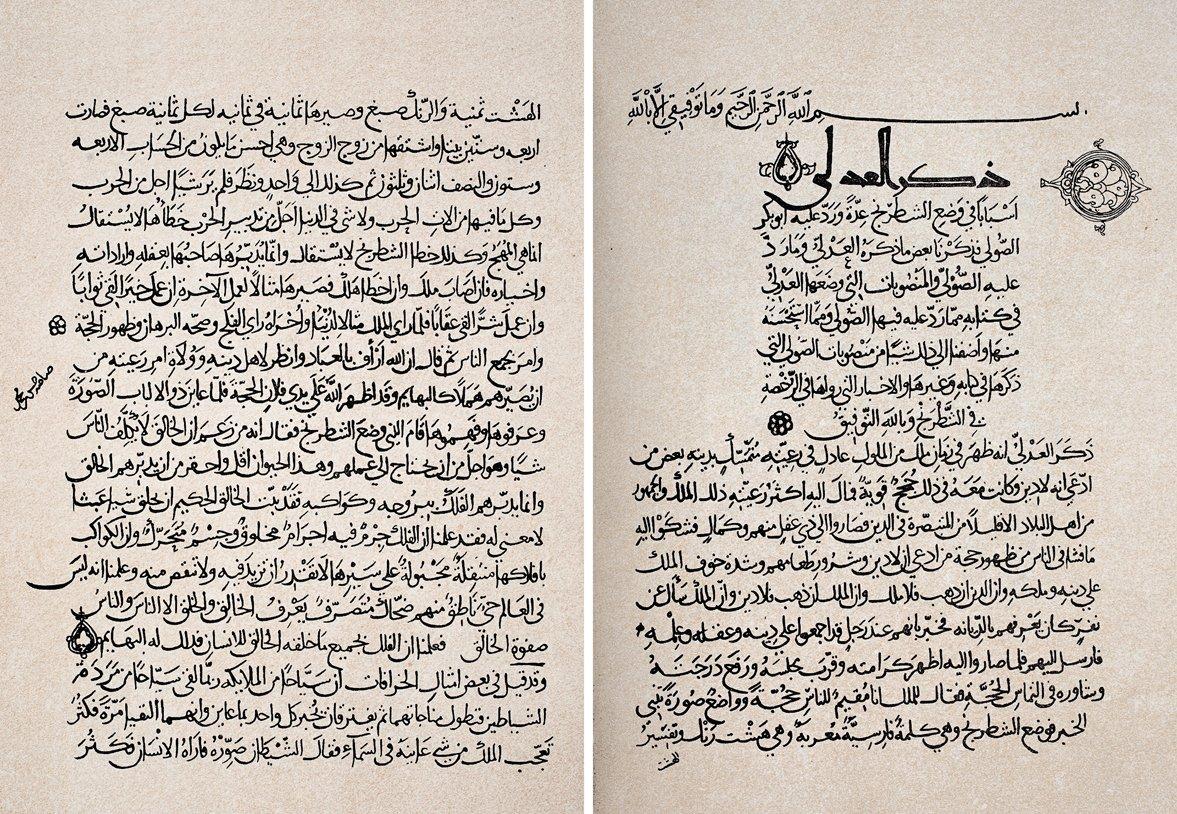 بسم الله الرحمن الرحيم وما توفيقي الا بالله
ذكر العدلي
اسبابا في وضع الشطرنج عدة ورد عليه ابو بكر
الصولي فذكرنا بعض ما ذكره العدلي وما رد
عليه الصولي والمنصوبات التي وضعها العدلي
في كتابه مما رد عليه فيها الصولي ومما استحسنه
منها واضفنا الى ذلك شيئا من منصوبات الصولي التي
ذكرها في كتابه وغيرها والاخبار التي رواها في الرخصة
في الشطرنج وبالله التوفيق
ذكر العدلي انه ظهر في زمان ملك من الملوك عادل في رعيته متمسك بدينه بعض من
ادعى انه لا دين وكانت معه في ذلك حجج قوية فمال اليه اكثر رعيته ذلك الملك والجمهور
من اهل البلاد الا قليلا من المتبصرة في الدين فصاروا الى ذي عقل منهم وكمال فشكوا اليه
ما فشا في الناس من ظهور حجة من ادعى ان لا دين وشرور طغامهم وشدة خوف الملك
على دينه وملكه وان الدين ان ذهب فلا ملك وان الملك ان ذهب فلا دين وان الملك سأل عن
نفر كان يعرفهم بالديانة فخبر بانهم عند رجل قد اجمعوا على دينه وعقله وعلمه
فارسل اليهم فلما صاروا اليه اظهر كرامته وقرب مجلسه ورفع درجته
وشاوره في التماس الحجة فقال للملك انا مقيم للناس حجة وواضع صورة تبني
الخبر فوضع الشطرنج وهي كلمة فارسية معربة وهي هشت رنك وتفسير
الهشت ثمنية والرنك صبغ وصيرها ثمانية في ثمانية لكل ثمانية صبغ فصارت
اربعة وستين بيتا واشتقها من زوج الزوج وهي احسن ما يكون من الحساب الاربعة
وستون والنصف اثنان وثلثون ثم كذلك الى واحد ونظر فلم ير شيئا اجل من الحرب
وكل ما فيها من الات الحرب ولا شي في الدنيا اجل من تدبير الحرب خطأها لا يستقال
انما هي المهج وكذلك خطأ الشطرنج لا يستقال وانما يدبرها صاحبها بعقله وارادته
واختياره فان اصاب ملك وان اخطأ هلك فصيرها مثالا لعمل الآخرة ان عمل خيرا لقي ثوابا
وان عمل شرا لقي عقابا فلما راي الملك مثالا للدنيا واخراه راي الفلج وصحة البرهان وظهور الحجة
وامر بجمع الناس ثم قال ان الله ارأف بالعباد وانظر لاهل دينه وولاة امر رعيته من
ان يصيرهم هملا كالبهايم وقد اظهر الله على يدي فلان الحجة فلما عاين ذوو الالباب الصورة
وعرفوها وفهموها قام الذي وضع الشطرنج فقال انه من زعم ان الخالق لا يكلف الناس
شيا وهو اجل من ان يحتاج الى عملهم وهذا الحيوان اقل واحقر من ان يدبرهم الخالق
وانما يدبرهم الفلك ببروجه وكواكبه فقد يثبت الخالق الحكيم ان يخلق شيا عبثا
لا معنى له فقد علمنا ان الفلك جرم فيه اجرام مخلوق وجسم متحرك وان الكواكب
بافلاكها متنقلة مجبولة على سيرها لا تقدر ان تزيد فيه ولا تنقص منه وعلمنا انه ليس
في العالم حي ناطق منهم ضحاك متصرف يعرف الخالق والخلق الا الناس والناس
صفوة الخالق فعلمنا ان الفلك بجميع ما خلقه الخالق للانسان فذلك له البهايم
وقد قيل في بعض امثال الخرافات ان سياحا من الملايكة ربما لقي سياحا من مردة
الشياطين فتطول مناجاتهما ثم يفترقان فخبر كل واحد بما عاين وانهما التقيا مرة فكثر
تعجب الملك من شي عاينه في السماء فقال الشيطان صوره فاراه الانسان فكثر